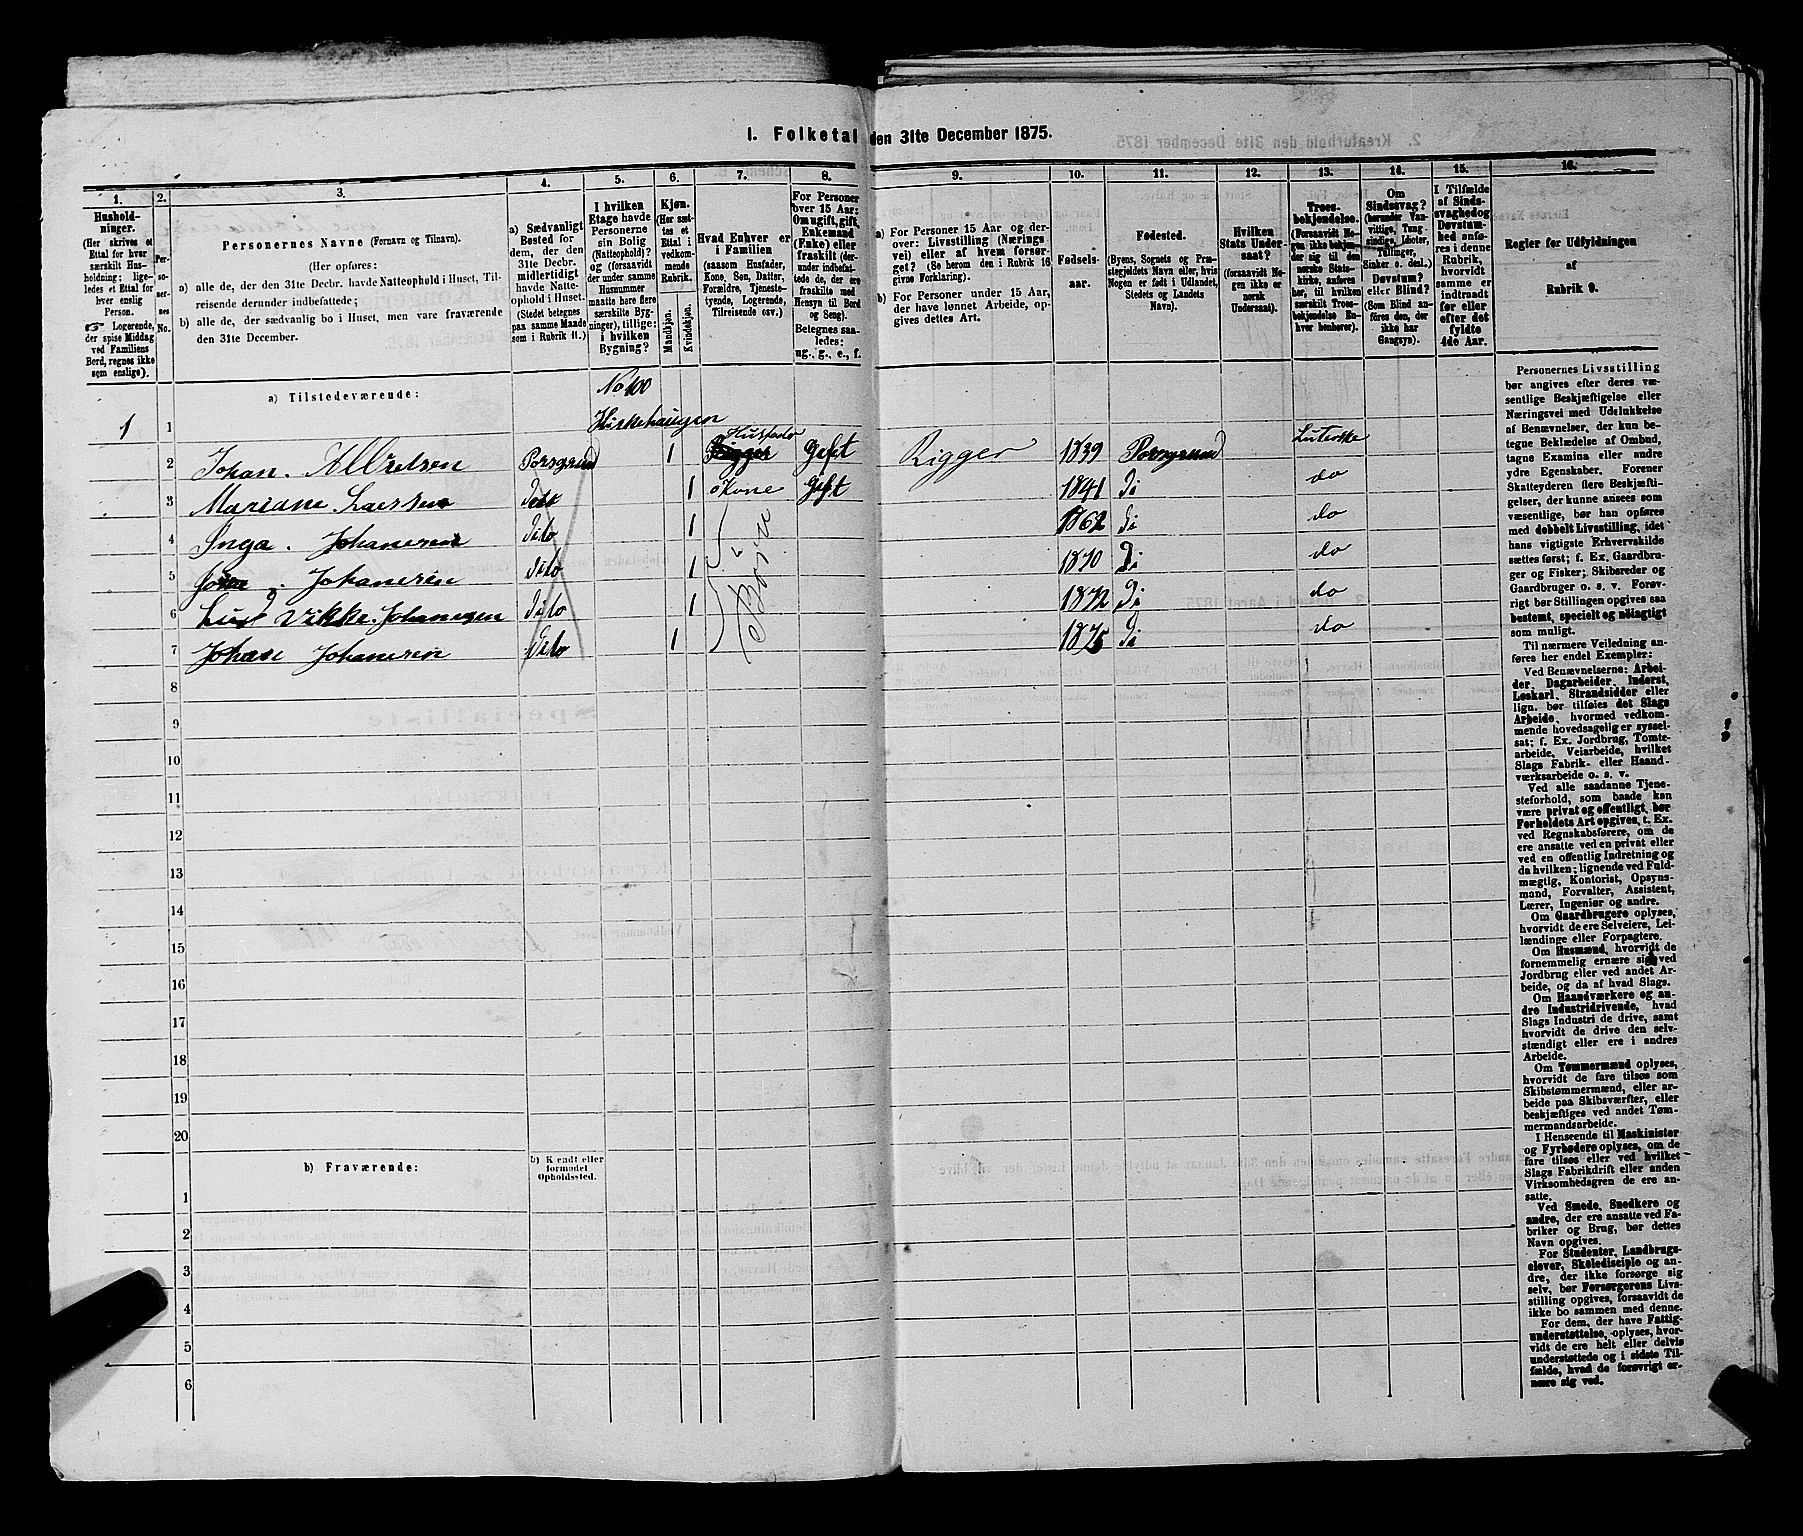 1. Folketal den 31te December 1875.
1. 2. 3. 4. 5. 6. 7. 8. 9. 10. 11. 12. 13. 14. 15. 16.
Hushold-
ninger.
(Her skrives et
Ettal for hver
særskilt Hus-
holdning; lige-
ledes et Ettal for
hver enslig
Person.
☞ Logerende,
der spise Middag
ved Familiens
Bord, regnes ikke
som enslige).
Per-
so-
ner-
nes
No.
Personernes Navne (Fornavn og Tilnavn).
(Her opføres:
a) alle de, der den 31te Decbr. havde Natteophold i Huset, Til-
reisende derunder indbefattede;
b) alle de, der sædvanlig bo i Huset, men vare fraværende
den 31te December.
a) Sædvanligt
Bosted for
dem, der den
31te Decbr.
midlertidigt
havde Natte-
ophold i Huset.
(Stedet betegnes
paa samme Maade
som i Rubrik 11.)
I hvilken
Etage havde
Personerne
sin Bolig
(Natteophold)?
og (forsaavidt
der under samme
Husnummer
maatte høre flere
særskilte Byg-
ninger), tillige:
i hvilken
Bygning?
Kjøn.
(Her sæt-
tes et
Ettal i
vedkom-
mende
Rubrik.
Mandkjøn.
Kvindekjøn.
Hvad Enhver er
i Familien
(saasom Husfader,
Kone, Søn, Datter,
Forældre, Tjeneste-
tyende, Logerende,
Tilreisende osv.)
For Personer
over 15 Aar:
Om ugift, gift,
Enkemand
(Enke) eller
fraskilt (der-
under indbefat-
tede de, der ere
fraskilte med
Hensyn til Bord
og Seng).
Betegnes saa-
ledes:
ug., g., e., f.
a) For Personer 15 Aar og der-
over: Livsstilling (Nærings-
vei) eller af hvem forsør-
get? (Se herom den i Rubrik 16
givne Forklaring).
b) For Personer under 15 Aar,
der have lønnet Arbeide, op-
gives dettes Art.
Fødsels-
aar.
Fødested.
(Byens, Sognets og Præ-
stegjeldets Navn eller, hvis
Nogen er født i Udlandet,
Stedets og Landets
Navn).
Hvilken
Stats Under-
saat?
(forsaavidt No-
gen ikke er
norsk
Undersaat).
Troes-
bekjendelse.
(Forsaavidt No-
gen ikke bekjen-
der sig til den
norske Stats-
kirke, anføres
her, til hvilken
særskilt Troes-
bekjendelse En-
hver henhører).
Om
Sindssvag?
(herunder Van-
vittige, Tung-
sindige, Idioter,
Tullinger,
Sinker o. desl.)
Døvstum?
eller Blind?
(Som Blind an-
føres den, der
ikke har
Gangsyn).
I Tilfælde
af Sinds-
svaghed og
Døvstum-
hed anfø-
res i denne
Rubrik,
hvorvidt
samme er
indtraadt
før eller
efter det
fyldte
4de Aar.
Regler for Udfyldningen
af
Rubrik 9.
a) Tilstedeværende:
No 100
1 1 Kirkehaugen
2 Johan. Porsgrund 1 Husfader Gift Rigger 1839 Porsgrund Luterske
3 Mariane Larsen 1 Kone Gift 1841 Di do
4 Inga. Johannesen Dito 1 1862 Di do
5 Johannesen Dito 1 1870 Di do
6 Vikke. Johannesen Dito 1 1872 Di do
7 Johan Johannesen Dito 1 1875 Di do
Børn
8
9
10
11
12
13
14
15
16
17
18
19
20
b) Fraværende:
b) Kjendt eller
formodet
Opholdssted.
1
2
3
4
5
6
Personernes Livsstilling
bør angives efter deres væ-
sentlige Beskjæftigelse eller
Næringsvei med Udelukkelse
af Benævnelser, der kun be-
tegne Beklædelse af Ombud,
tagne Examina eller andre
ydre Egenskaber. Forener
Skatteyderen flere Beskjæfti-
gelser, der kunne ansees som
væsentlige, bør han opføres
med dobbelt Livsstilling, idet
hans vigtigste Erhvervskilde
sættes først; f. Ex. Gaardbru-
ger og Fisker; Skibsreder og
Gaardbruger o. s. v. Forøv-
rigt bør Stillingen opgives saa
bestemt, specielt og nøiagtigt
som muligt.
Til nærmere Veiledning an-
føres her endel Exempler:
Ved Benævnelserne: Arbei-
der, Dagarbeider, Inderst,
Løskarl, Strandsidder eller
lign. bør tilføies det Slags
Arbeide, hvormed vedkom-
mende hovedsagelig er syssel-
sat; f. Ex. Jordbrug, Tomte-
arbeide, Veiarbeide, hvilket
Slags Fabrik- eller Haand-
værksarbeide o. s. v.
Ved alle saadanne Tjene-
steforhold, som baade kan
være privat og offentligt, bør
Forholdets Art opgives, t. Ex.
ved Regnskabsførere, om de
ere ansatte ved en privat eller
ved en offentlig Indretning og
da hvilken; lignende ved Fuld-
mægtig, Kontorist, Opsyns-
mand, Forvalter, Assistent,
Lærer, Ingeniør og andre.
Om Gaardbrugere oplyses,
hvorvidt de ere Selveiere, Lei-
lændinge eller Forpagtere.
Om Husmænd, hvorvidt de
fornemmelig ernære sig ved
Jordbrug eller ved andet Ar-
beide, og da af hvad Slags.
Om Haandværkere og an-
dre Industridrivende, hvad
Slags Industri de drive, samt
hvorvidt de drive den selv-
stændigt eller ere i andres
Arbeide.
Om Tømmermænd oplyses,
hvorvidt de fare tilsøs som
Skibstømmermænd, eller ar-
beide paa Skibsværfter, eller
beskjæftiges ved andet Tøm-
mermandsarbeide.
I Henseende til Maskinister
og Fyrbødere oplyses, om de
fare tilsøs eller ved hvilket
Slags Fabrikdrift eller anden
Virksomhedsgren de ere an-
satte.
Ved Smede, Snedkere og
andre, der ere ansatte ved Fa-
briker og Brug, bør dettes
Navn opgives.
For Studenter, Landbrugs-
elever, Skoledisciple og an-
dre, der ikke forsørge sig
selv, bør Forsørgerens Livs-
stilling opgives, forsaavidt de
ikke bo sammen med denne.
For dem, der have Fattig-
understøttelse, oplyses, hvor-
vidt de ere helt eller delvis
understøttede og i sidste Til-
fælde, hvad de forøvrigt er-
nære sig ved.